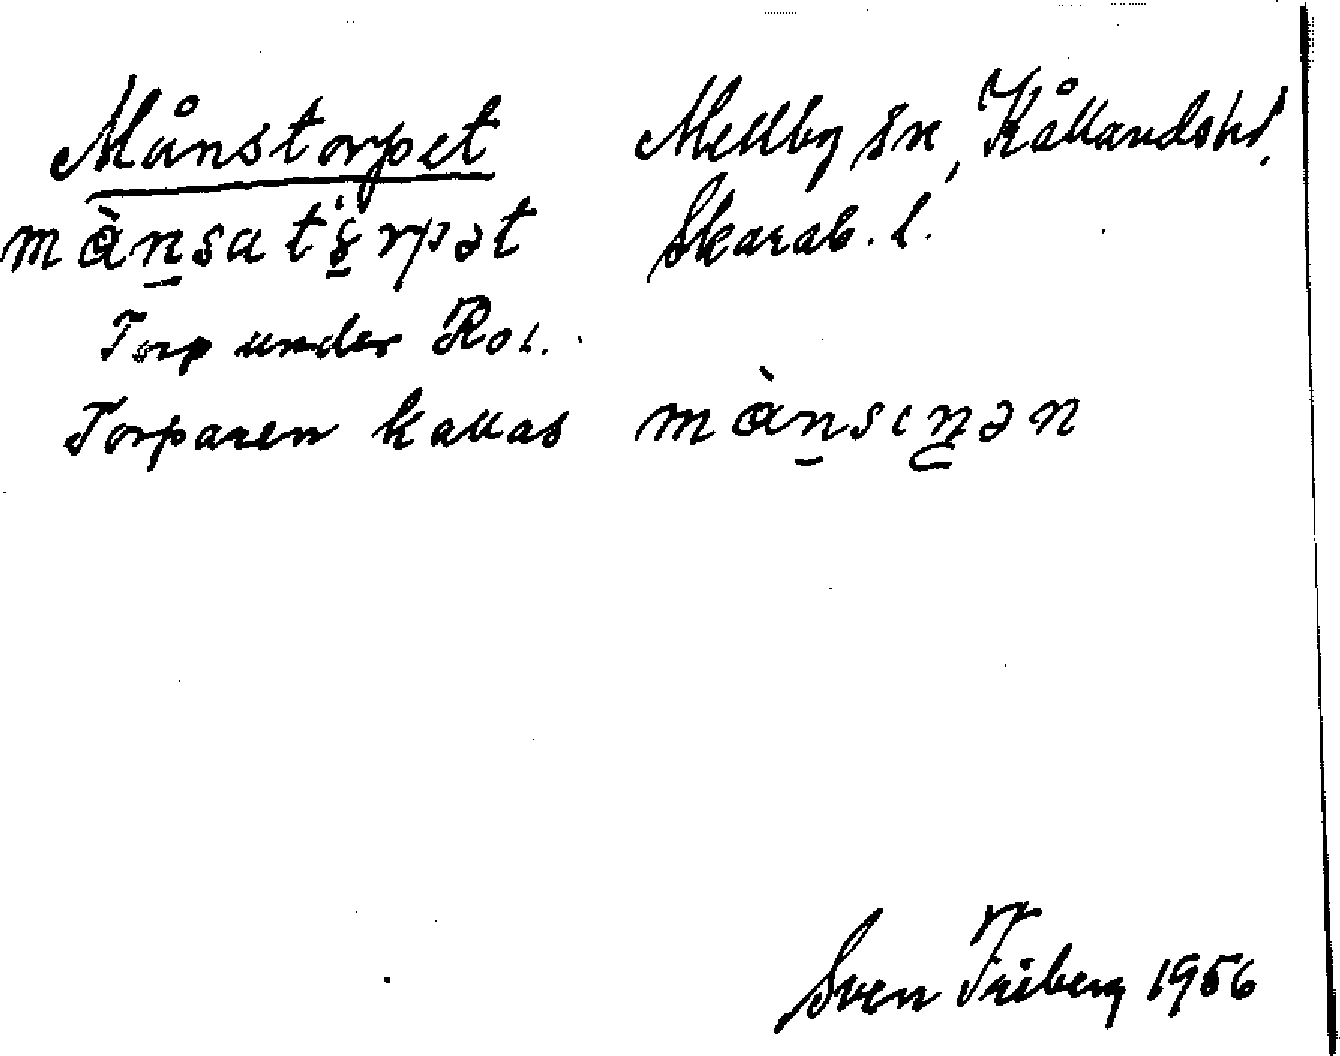 Månstorpet Mellby sn, Kållandshd.
mànsat'ərpət Skarab. l.
Torp under Ro
Torparen kallas mànsɩnən
Sven Friberg 1956